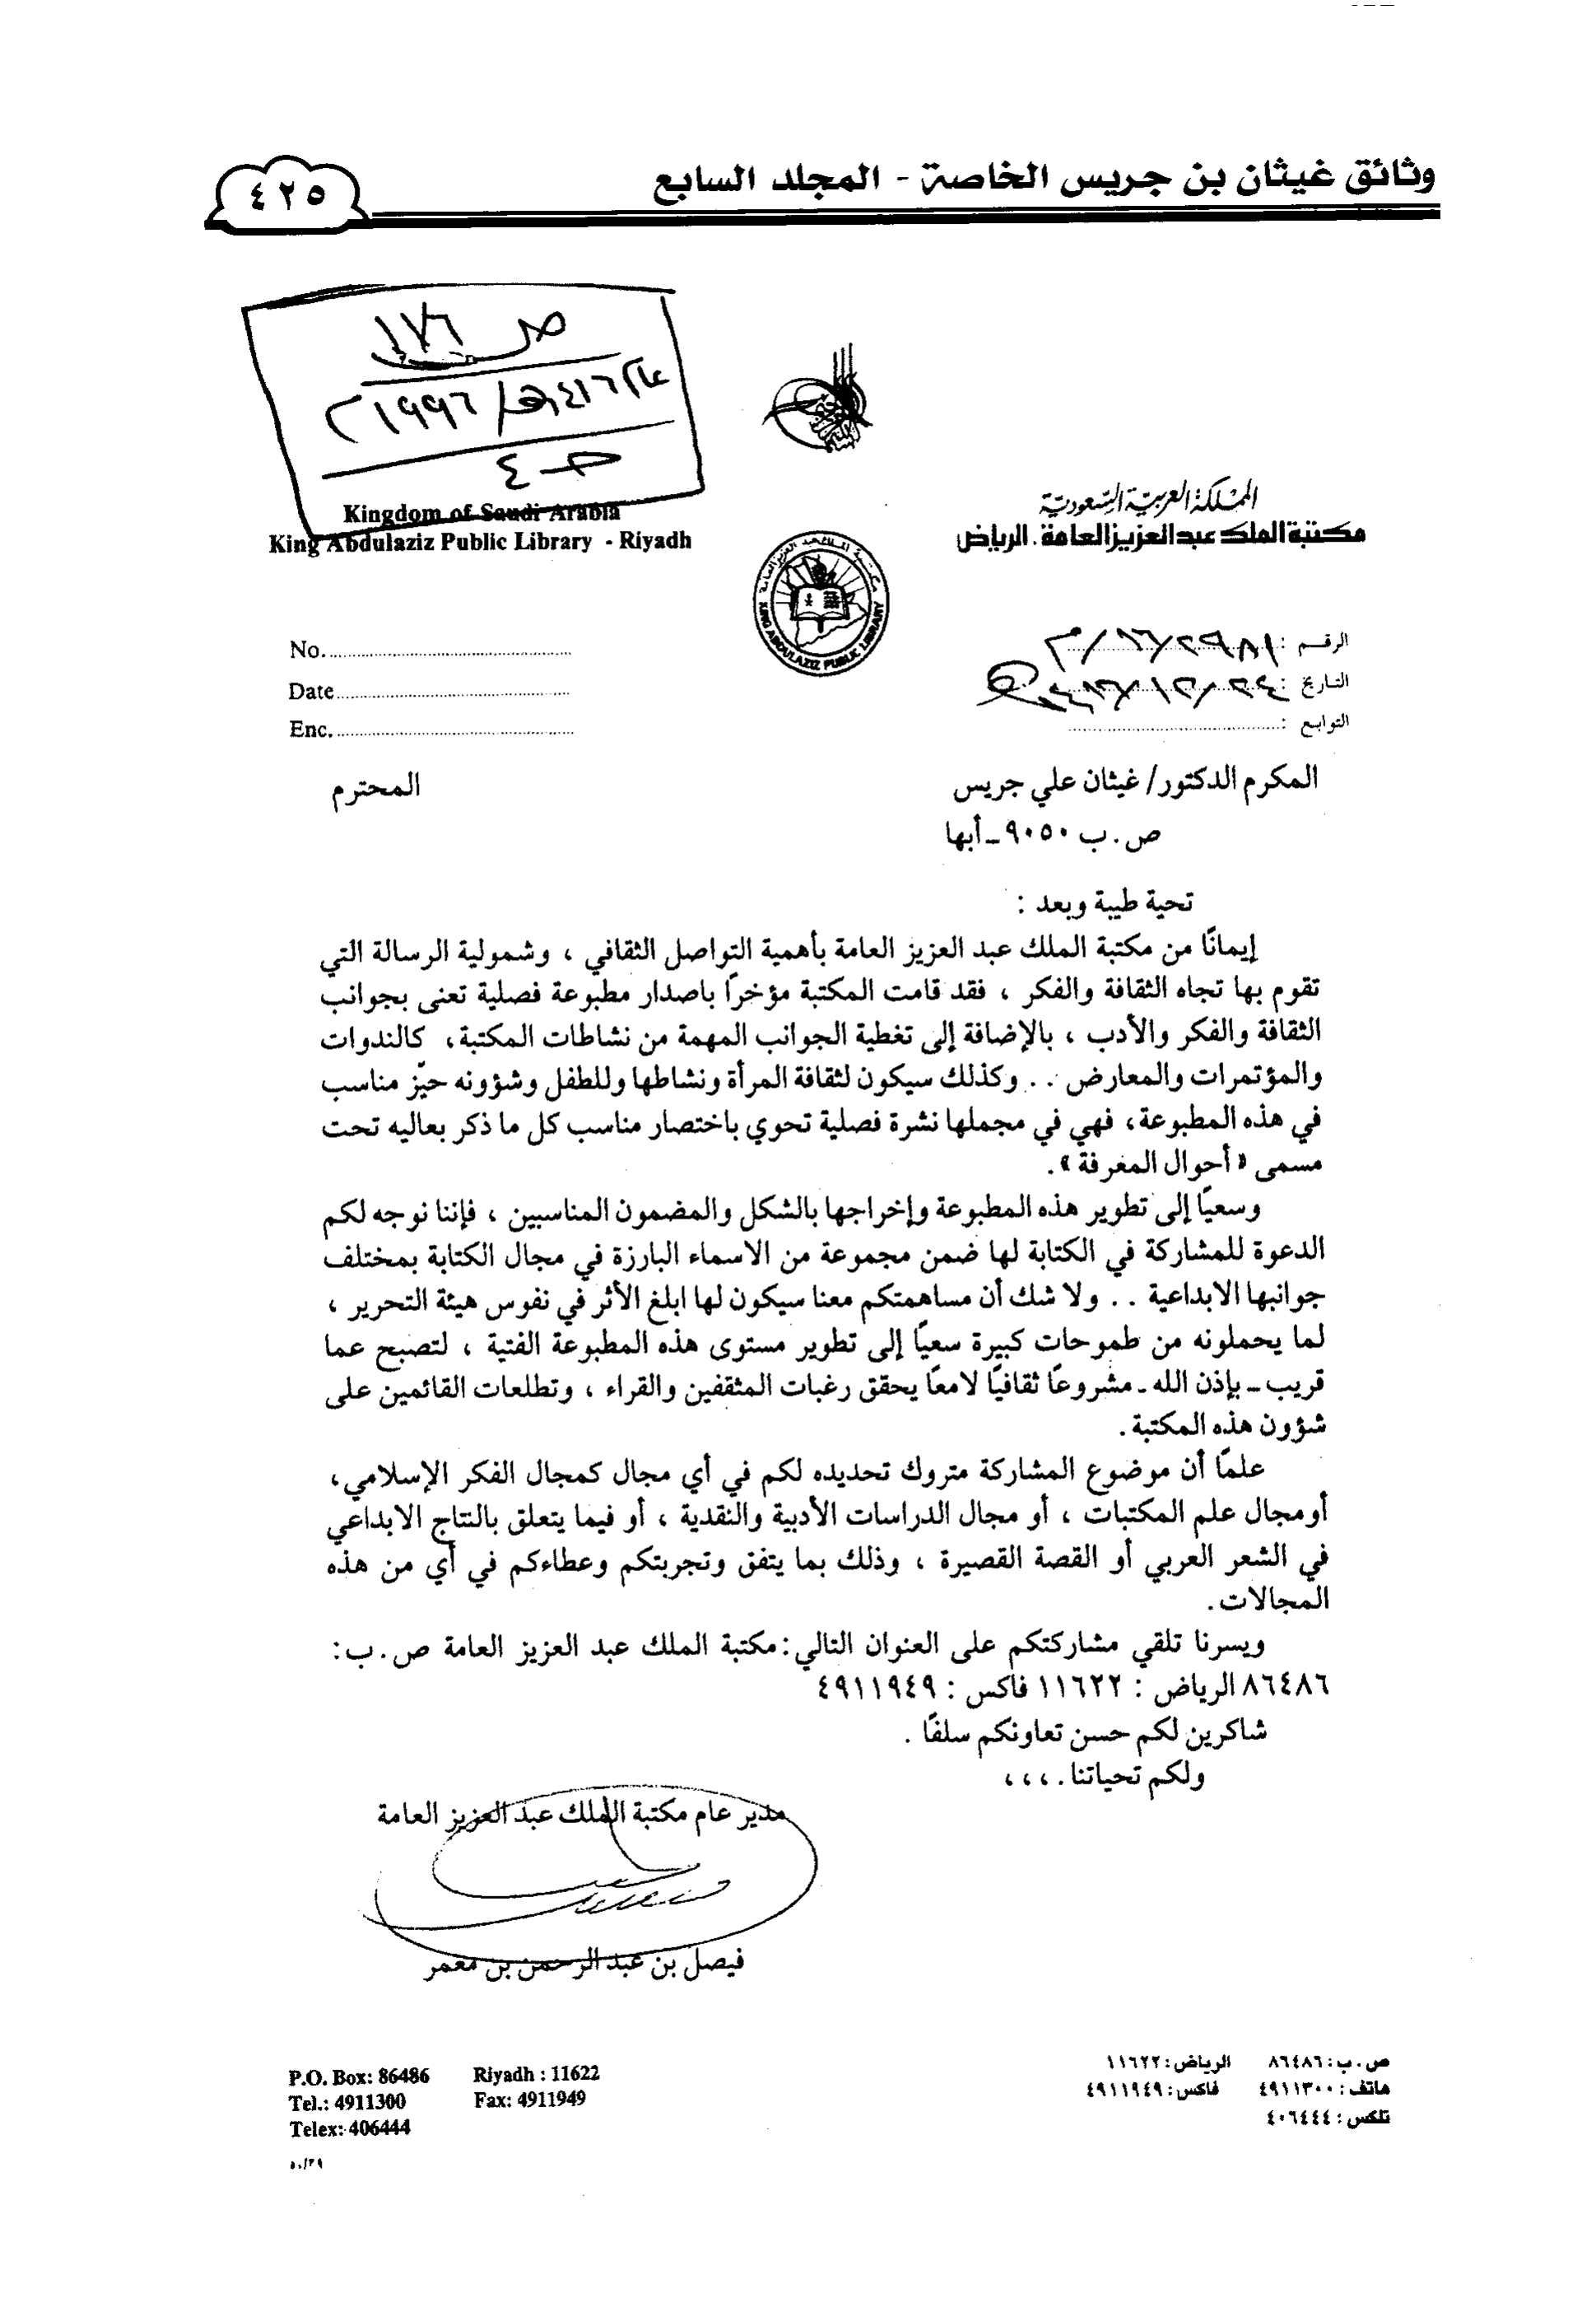 وثائق غيثان بن جريس الخاصة - المجلد السابع
٤٢٥
ص ١٧٦
عام ١٤١٦هـ / ١٩٩٦م
حـ ٤
Kingdom of Saudi Arabia
King Abdulaziz Public Library - Riyadh
المملكة العربية السعودية
مكتبة الملك عبدالعزيز العامة . الرياض
مكتبة الملك عبد العزيز العامة
KING ABDULAZIZ PUBLIC LIBRARY
No.
Date
Enc.
الرقم :
التاريخ :
التوابع :
المكرم الدكتور/ غيثان علي جريس المحترم
ص . ب ٩٠٥٠ ـ أبها
تحية طيبة وبعد :
إيمانًا من مكتبة الملك عبد العزيز العامة بأهمية التواصل الثقافي ، وشمولية الرسالة التي
تقوم بها تجاه الثقافة والفكر ، فقد قامت المكتبة مؤخرًا باصدار مطبوعة فصلية تعنى بجوانب
الثقافة والفكر والأدب ، بالإضافة إلى تغطية الجوانب المهمة من نشاطات المكتبة، كالندوات
والمؤتمرات والمعارض . . وكذلك سيكون لثقافة المرأة ونشاطها وللطفل وشؤونه حيّز مناسب
في هذه المطبوعة، فهي في مجملها نشرة فصلية تحوي باختصار مناسب كل ما ذكر بعاليه تحت
مسمى «أحوال المعرفة».
وسعيًا إلى تطوير هذه المطبوعة وإخراجها بالشكل والمضمون المناسبين ، فإننا نوجه لكم
الدعوة للمشاركة في الكتابة لها ضمن مجموعة من الاسماء البارزة في مجال الكتابة بمختلف
جوانبها الابداعية . . ولا شك أن مساهمتكم معنا سيكون لها ابلغ الأثر في نفوس هيئة التحرير ،
لما يحملونه من طموحات كبيرة سعيًا إلى تطوير مستوى هذه المطبوعة الفتية ، لتصبح عما
قريب ـ بإذن الله ـ مشروعًا ثقافيًا لامعًا يحقق رغبات المثقفين والقراء ، وتطلعات القائمين على
شؤون هذه المكتبة .
علمًا أن موضوع المشاركة متروك تحديده لكم في أي مجال كمجال الفكر الإسلامي،
أومجال علم المكتبات ، أو مجال الدراسات الأدبية والنقدية ، أو فيما يتعلق بالنتاج الابداعي
في الشعر العربي أو القصة القصيرة ، وذلك بما يتفق وتجربتكم وعطاءكم في أي من هذه
المجالات.
ويسرنا تلقي مشاركتكم على العنوان التالي: مكتبة الملك عبد العزيز العامة ص . ب:
٨٦٤٨٦ الرياض : ١١٦٢٢ فاكس : ٤٩١١٩٤٩
شاكرين لكم حسن تعاونكم سلفًا .
ولكم تحياتنا . ، ، ،
مدير عام مكتبة الملك عبد العزيز العامة
فيصل بن عبد الرحمن بن معمر
P.O. Box: 86486 Riyadh : 11622
Tel.: 4911300 Fax: 4911949
Telex: 406444
٥٠/٣٩
ص . ب : ٨٦٤٨٦ الرياض : ١١٦٢٢
هاتف : ٤٩١١٣٠٠ فاكس : ٤٩١١٩٤٩
تلكس : ٤٠٦٤٤٤